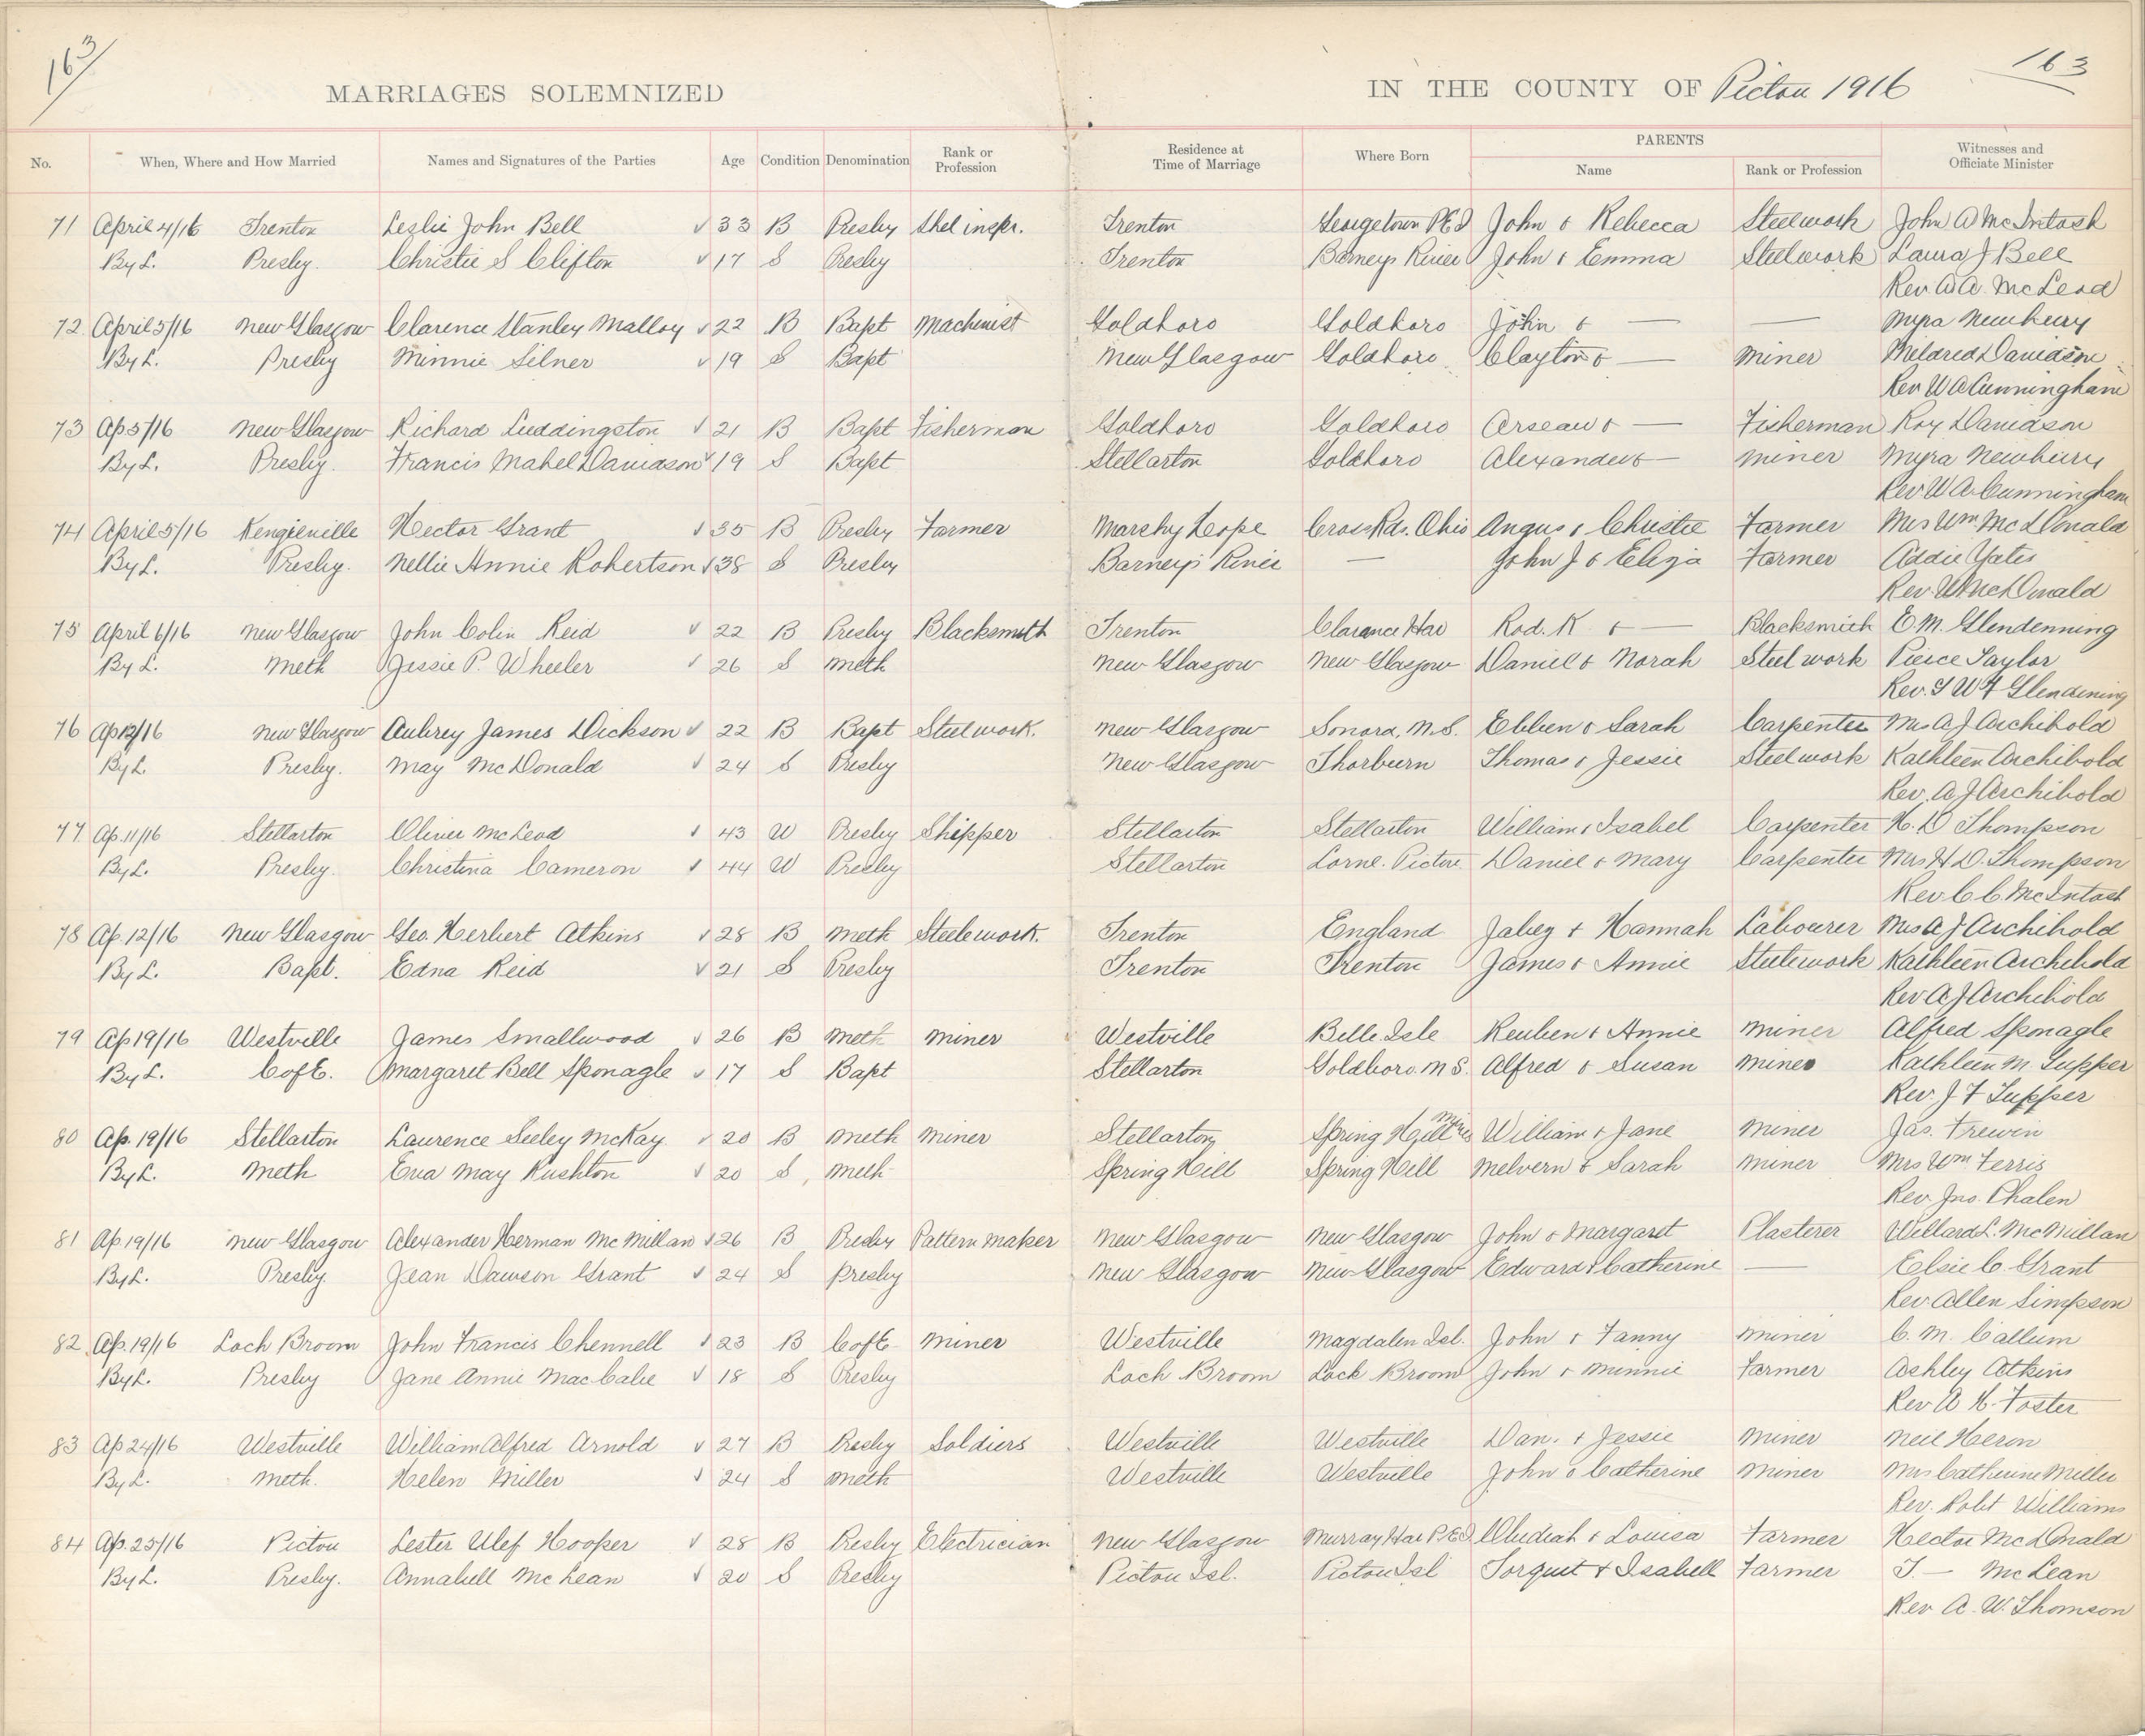 163
163
MARRIAGES SOLEMNIZED IN THE COUNTY OF Pictou 1916
No. When, Where and How Married Names and Signatures of the Parties Age Condition Denomination Rank or Profession Residence at Time of Marriage Where Born PARENTS Name Rank or Profession Witnesses and Officiate Minister
71 April 4/16 Trenton Leslie John Bell 33 B Presby Shel inspr. Trenton Georgetown PEI John & Rebecca Steelwork John A McIntosh
By L. Presby. Christie S Clifton 17 S Presby Trenton Barneys River John & Emma Steelwork Laura J Bell
Rev W A McLeod
72 April 5/16 New Glasgow Clarence Stanley Malloy 22 B Bapt Machinist Goldboro Goldboro John & — — Myra Newbury
By L. Presby Minnie Silner 19 S Bapt New Glasgow Goldboro Clayton & — Miner Mildred Davidson
Rev W A Cunningham
73 Ap 5/16 New Glasgow Richard Luddingston 21 B Bapt Fisherman Goldboro Goldboro & — Fisherman Roy Davidson
By L. Presby. Francis Mabel Davidson 19 S Bapt Stellarton Goldboro Alexander & — Miner Myra Newbury
Rev W A Cunningham
74 April 5/16 Hector Grant 35 B Presby Farmer Marshy Hope Cross Rds. Ohio Angus & Christie Farmer Mrs Wm McDonald
By L. Presby. Nellie Annie Robertson 38 S Presby Barneys River — John J & Eliza Farmer Addie Yates
Rev W McDonald
75 April 6/16 New Glasgow John Colin Reid 22 B Presby Blacksmith Trenton Clarence Har Rod. K & — Blacksmith E. M. Glendenning
By L. Meth Jessie P. Wheeler 26 S Meth New Glasgow New Glasgow Daniel & Norah Steel work Pierce Taylor
Rev. G W F Glendining
76 Ap 12/16 New Glasgow Aubrey James Dickson 22 B Bapt Steel work. New Glasgow Sonora, N.S. Ebben & Sarah Carpenter Mrs A J Archibold
By L Presby. May McDonald 24 S Presby New Glasgow Thorburn Thomas & Jessie Steelwork Kathleen Archibold
Rev. A J Archibold
77 Ap. 11/16 Stellarton Oliver McLeod 43 W Presby Shipper Stellarton Stellarton William & Isabel Carpenter H. D Thompson
By L. Presby. Christina Cameron 44 W Presby Stellarton Lorne. Pictou Daniel & Mary Carpenter Mrs H. D. Thompson
Rev C C. McIntosh
78 Ap. 12/16 New Glasgow Geo. Herbert Atkins 28 B Meth Steelework. Trenton England Jabez + Hannah Labourer Mrs A J Archibold
By L. Bapt. Edna Reid 21 S Presby Trenton Trenton James & Annie Steelework Kathleen Archibold
Rev A J Archibold
79 Ap 19/16 Westville James Smallwood 26 B Meth Miner Westville Belle Isle Reuben & Annie Miner Alfred Sponagle
By L. C of E. Margaret Bell Sponagle 17 S Bapt Stellarton Goldboro. N S. Alfred & Susan Miner Kathleen M. Tupper
Rev. J F Tupper
80 Ap. 19/16 Stellarton Laurence Seeley McKay. 20 B Meth Miner Stellarton Spring Hill Mines William & Jane Miner Jas. Trewin
By L. Meth Eva May Rushton 20 S Meth Spring Hill Spring Hill Melvern & Sarah Miner Mrs Wm Ferris
Rev. Jno. Phalen
81 Ap 19/16 New Glasgow Alexander Herman McMillan 26 B Presby Pattern maker New Glasgow New Glasgow John & Margaret Plasterer Willard L. McMillan
By L. Presby. Jean Dawson Grant 24 S Presby New Glasgow New Glasgow Edward & Catherine — Elsie C. Grant
Rev. Allen Simpson
82 Ap. 19/16 Loch Broom John Francis Chennell 23 B C of E Miner Westville Magdalen Isl. John & Fanny Miner C. M. Callum
By L. Presby Jane Annie MacCabe 18 S Presby Loch Broom Lock Broom John & Minnie Farmer Ashley Atkins
Rev A H. Foster
83 Ap 24/16 Westville William Alfred Arnold 27 B Presby Soldiers Westville Westville Dan. & Jessie Miner Neil Heron
By L. Meth. Helen Miller 24 S Meth Westville Westville John & Catherine Miner Mrs Catherine Miller
Rev. Robt Williams
84 Ap. 25/16 Pictou Lester Ulef Hooper 28 B Presby Electrician New Glasgow Murray Har P.E.I. & Louisa Farmer Hector McDonald
By L. Presby. Annabell McLean 20 S Presby Pictou Isl. Pictou Isl Torquet & Isabell Farmer J. — McLean
Rev. A. W. Thomson